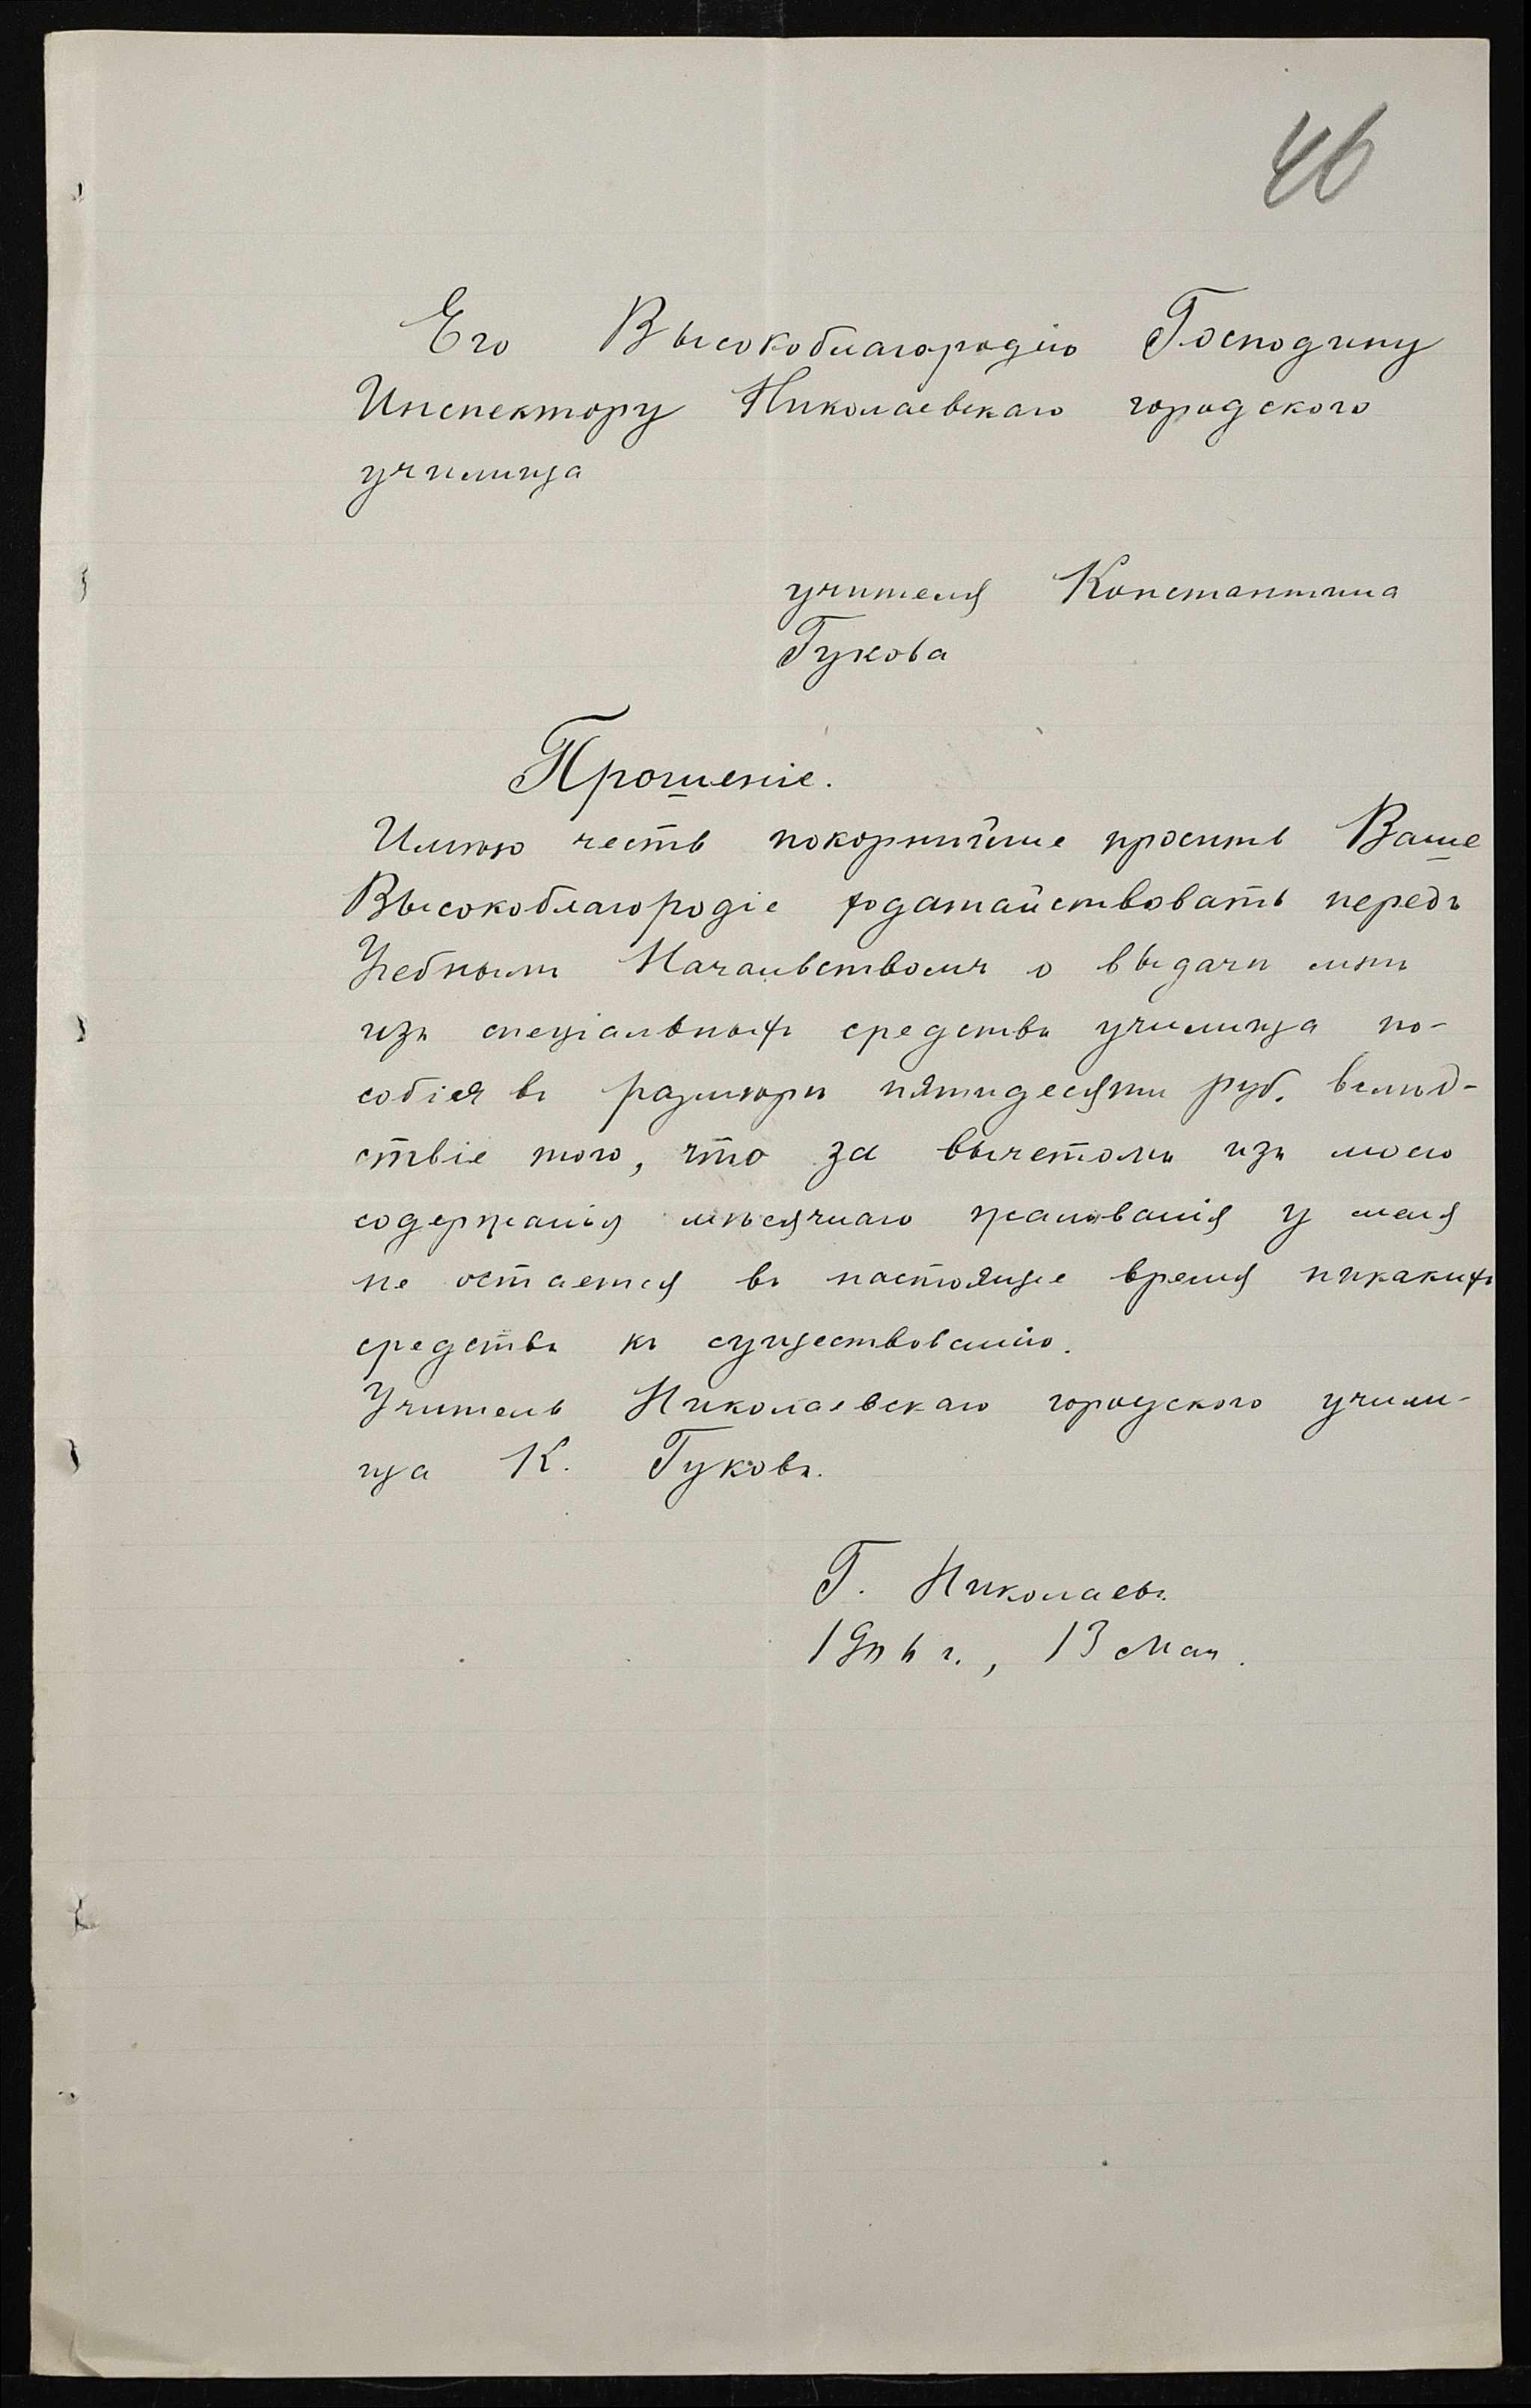 46
Его Высокоблагородію Господину
Инспектору Николаевскаго городского
училища
учителя Константина
Гукова
Прошеніе.
Имѣю честь покорнѣйше просить Ваше
Высокоблагородіе ходатайствовать передъ
Учебнымъ Начальствомъ о выдачѣ мнѣ
изъ спеціальныхъ средствъ училища по-
собія въ размѣрѣ пятидесяти руб. вслѣд-
ствіе того, что за вычетомъ изъ моего
содержанія мѣсячнаго жалованія у меня
не остается въ настоящее время никакихъ
средствъ къ существованію.
Учитель Николаевскаго городского учили-
ща К. Гуковъ.
Г. Николаевъ.
1906 г., 13 Мая.